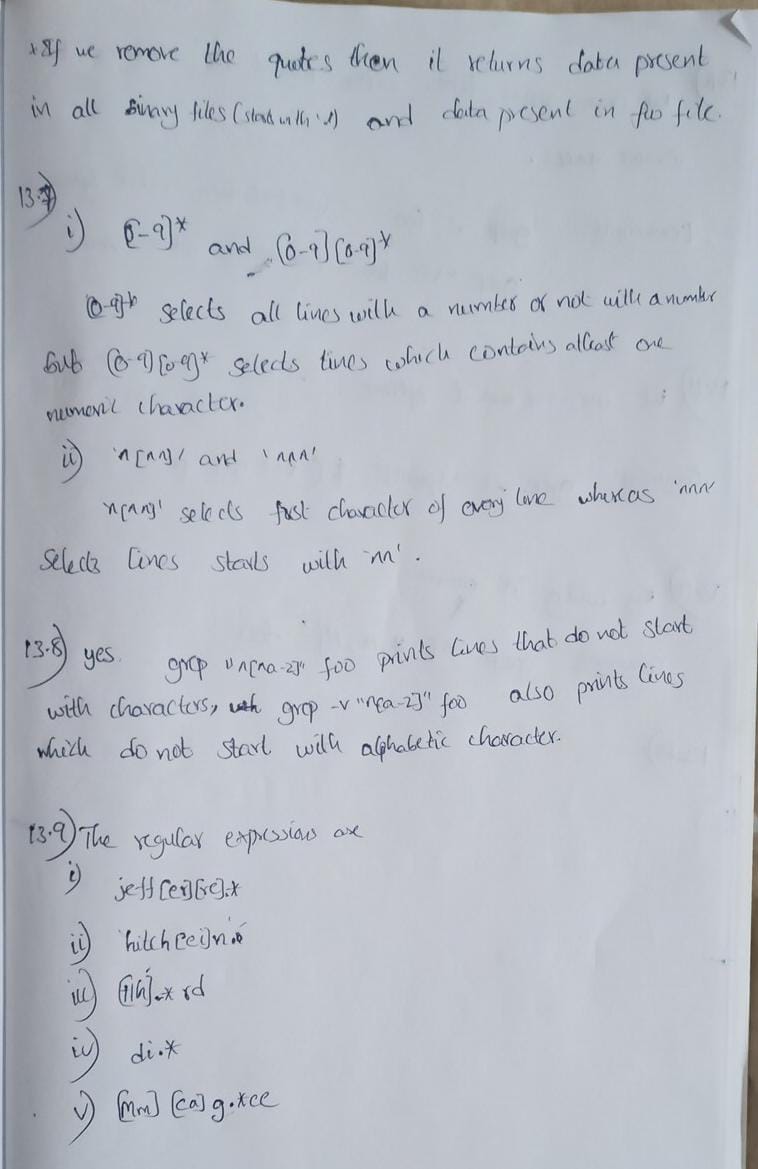 *If we remove the quotes then it returns data present
in all Binary files (start with '.') and data present in foo file.
13.7)
i) [0-9]* and [0-9][0-9]*
[0-9]* selects all lines with a number or not with a number
but [0-9][0-9]* selects lines which contains atleast one
numeric character.
ii) '^[^^]' and '^^^'
'^[^^]' selects first character of every line whereas '^^^'
Selects lines starts with '^^'.
13.8) yes. grep "^[^a-z]" foo prints lines that do not start
with characters, grep -v "^[a-z]" foo also prints lines
which do not start with alphabetic character.
13.9) The regular expressions are
i) jeff[er][re].*
ii) hitch[ei]n.*
iii) .*rd
iv) di.*
v) [Mm][ca]g.*ee